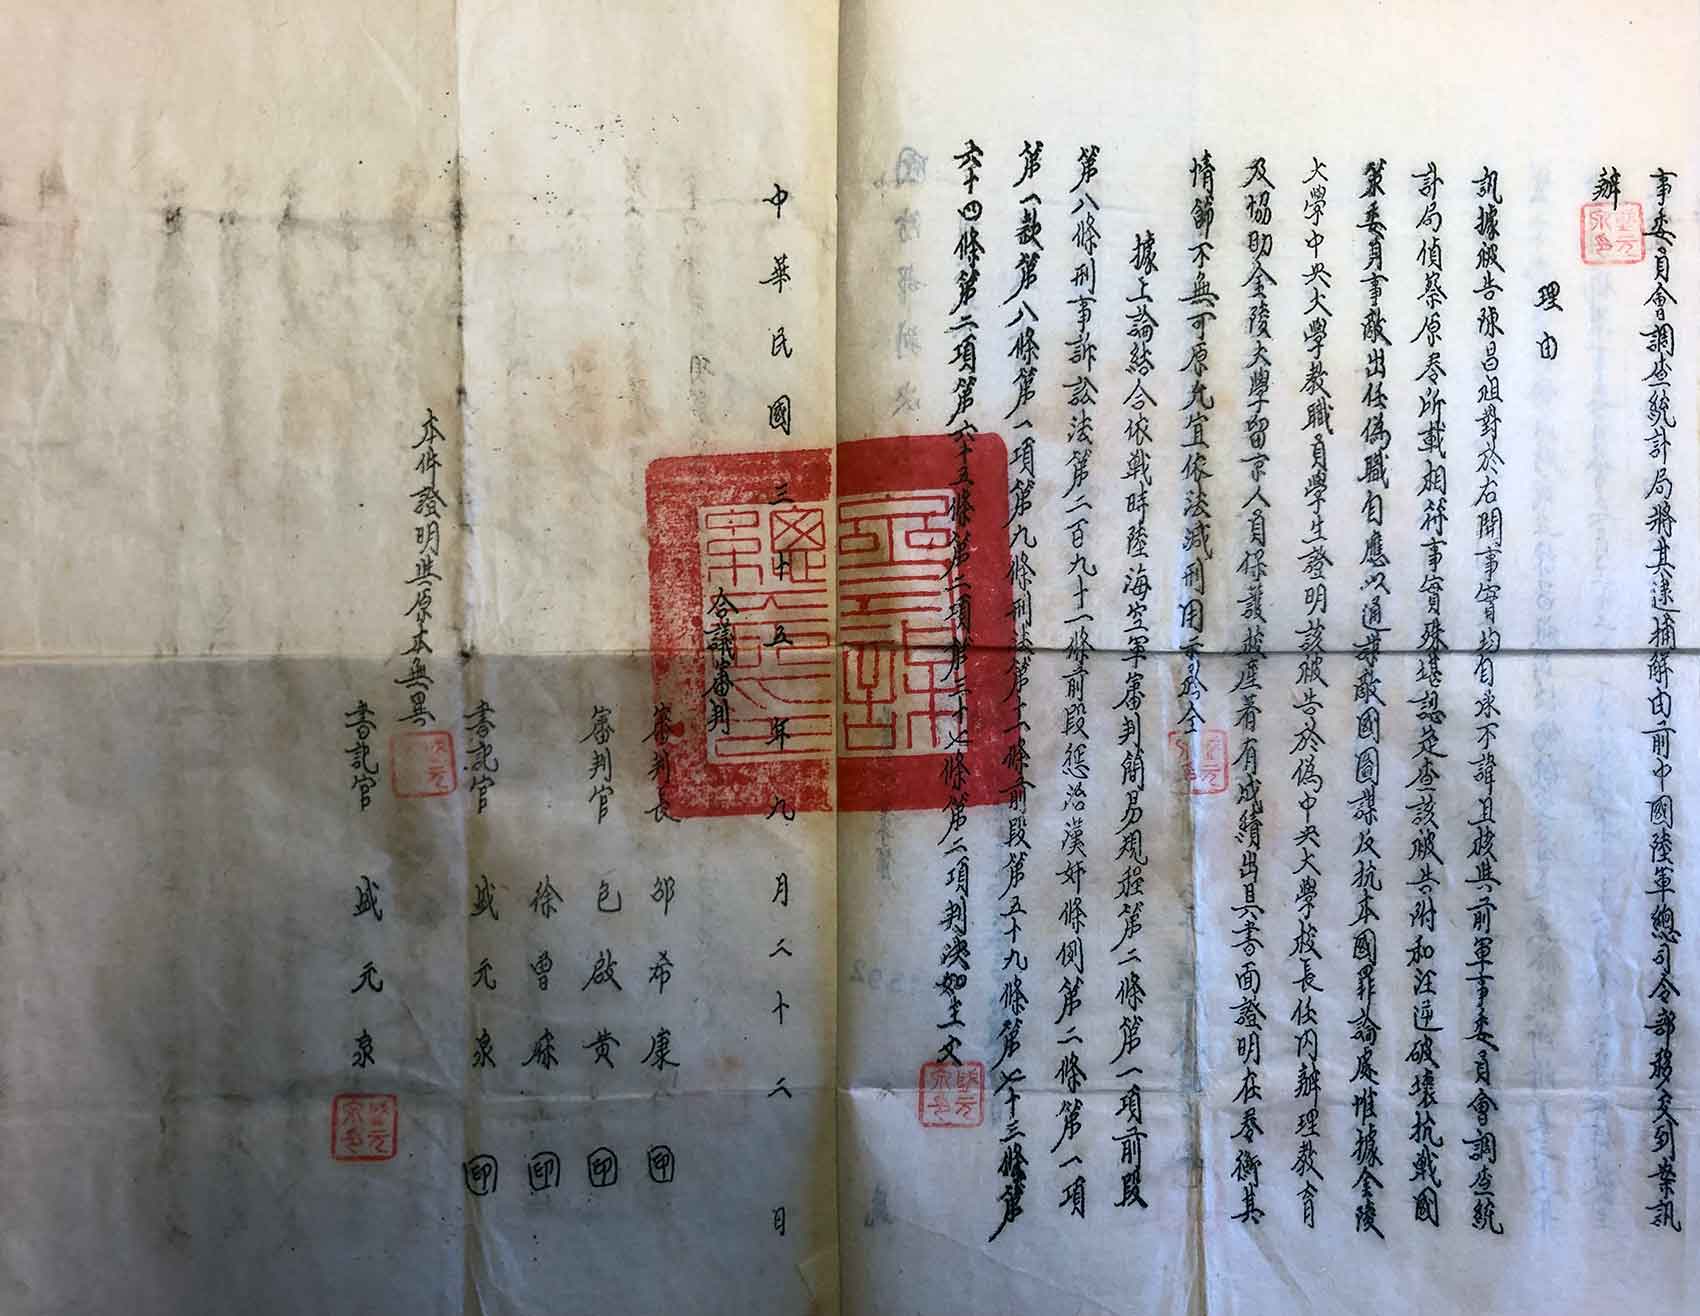 事委員會調查統計局將其逮捕解由前中國陸軍總司令部移交到案訊
辦
理由
訊據被告陳昌祖對於右開事實均自承不諱且核與前軍事委員會調查統
計局偵察原卷所載相符事實殊堪認定查該被告附和汪逆破壞抗戰國
策委身事敵出任偽職自應以通謀敵國圖謀反抗本國罪論處惟據金陵
大學中央大學教職員學生證明該被告於偽中央大學校長任內辦理教育
及協助金陵大學留京人員保護校產著有成績出具書面證明在卷衡其
情節不無可原允宜依法減刑用示矜全
據上論結合依戰時陸海空軍審判簡易規程第二條第一項前段
第八條刑事訴訟法第二百九十一條前段懲治漢奸條例第二條第一項
第一款第八條第一項第九條刑法第十一條前段第五十九條第七十三條第
六十四條第二項第六十五條第二項第三十七條第二項判決如主文
中華民國三十五年九月二十二日
合議審判
審判長 邵希康 印
審判官 包啟黄 印
審判官 徐曾 印
書記官 盛元泉 印
本件證明與原本無異
書記官 盛元泉